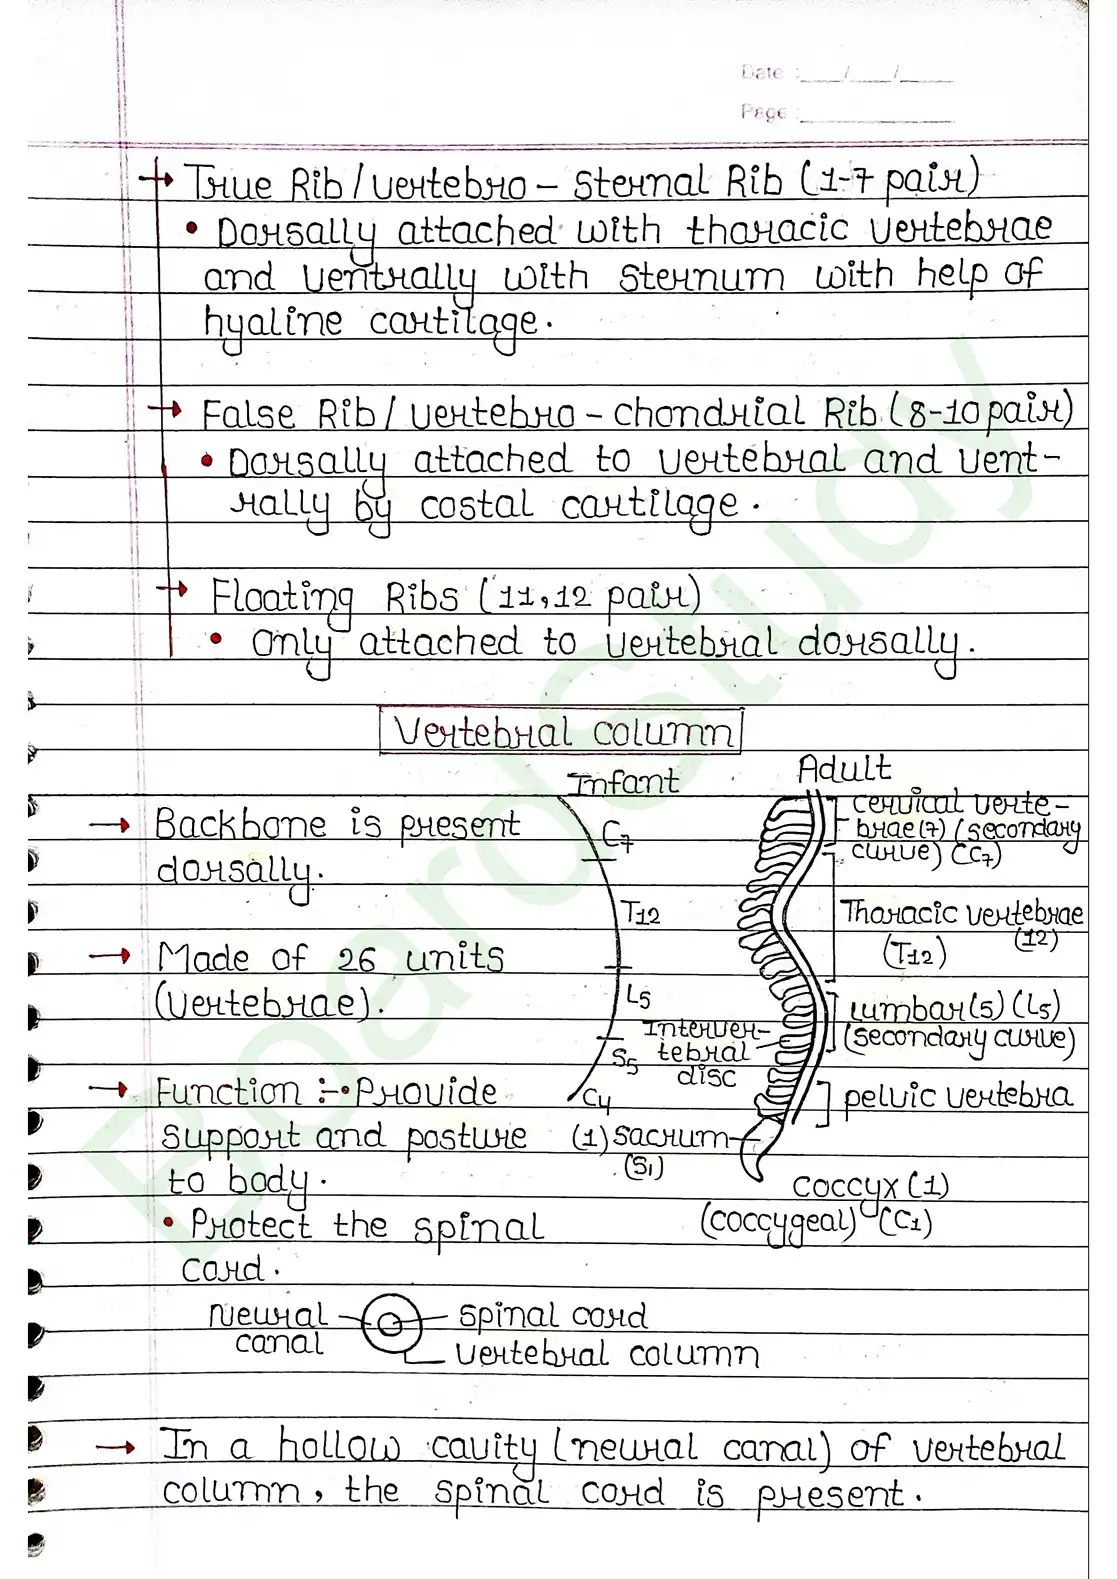 Date :___/___/____
Page :____________
→ True Rib / vertebro - sternal Rib (1-7 pair)
• Dorsally attached with thoracic vertebrae
and ventrally with sternum with help of
hyaline cartilage.
→ False Rib / vertebro - chondrial Rib (8-10 pair)
• Dorsally attached to vertebral and vent-
rally by costal cartilage.
→ Floating Ribs (11,12 pair)
• only attached to vertebral dorsally.
Vertebral column
→ Backbone is present
dorsally.
→ Made of 26 units
(vertebrae).
→ Function :- • Provide
support and posture
to body.
• Protect the spinal
cord.
Infant
C7
T12
L5
S5
C4
Adult
cervical verte-
brae (7) (secondary
curve) (C7)
Thoracic vertebrae
(T12) (12)
Lumbar (5) (L5)
(secondary curve)
Interver-
tebral
disc
pelvic vertebra
(1) sacrum
(S1)
coccyx (1)
(coccygeal) (C1)
neural
canal
spinal cord
vertebral column
→ In a hollow cavity (neural canal) of vertebral
column, the spinal cord is present.
BoardStudy